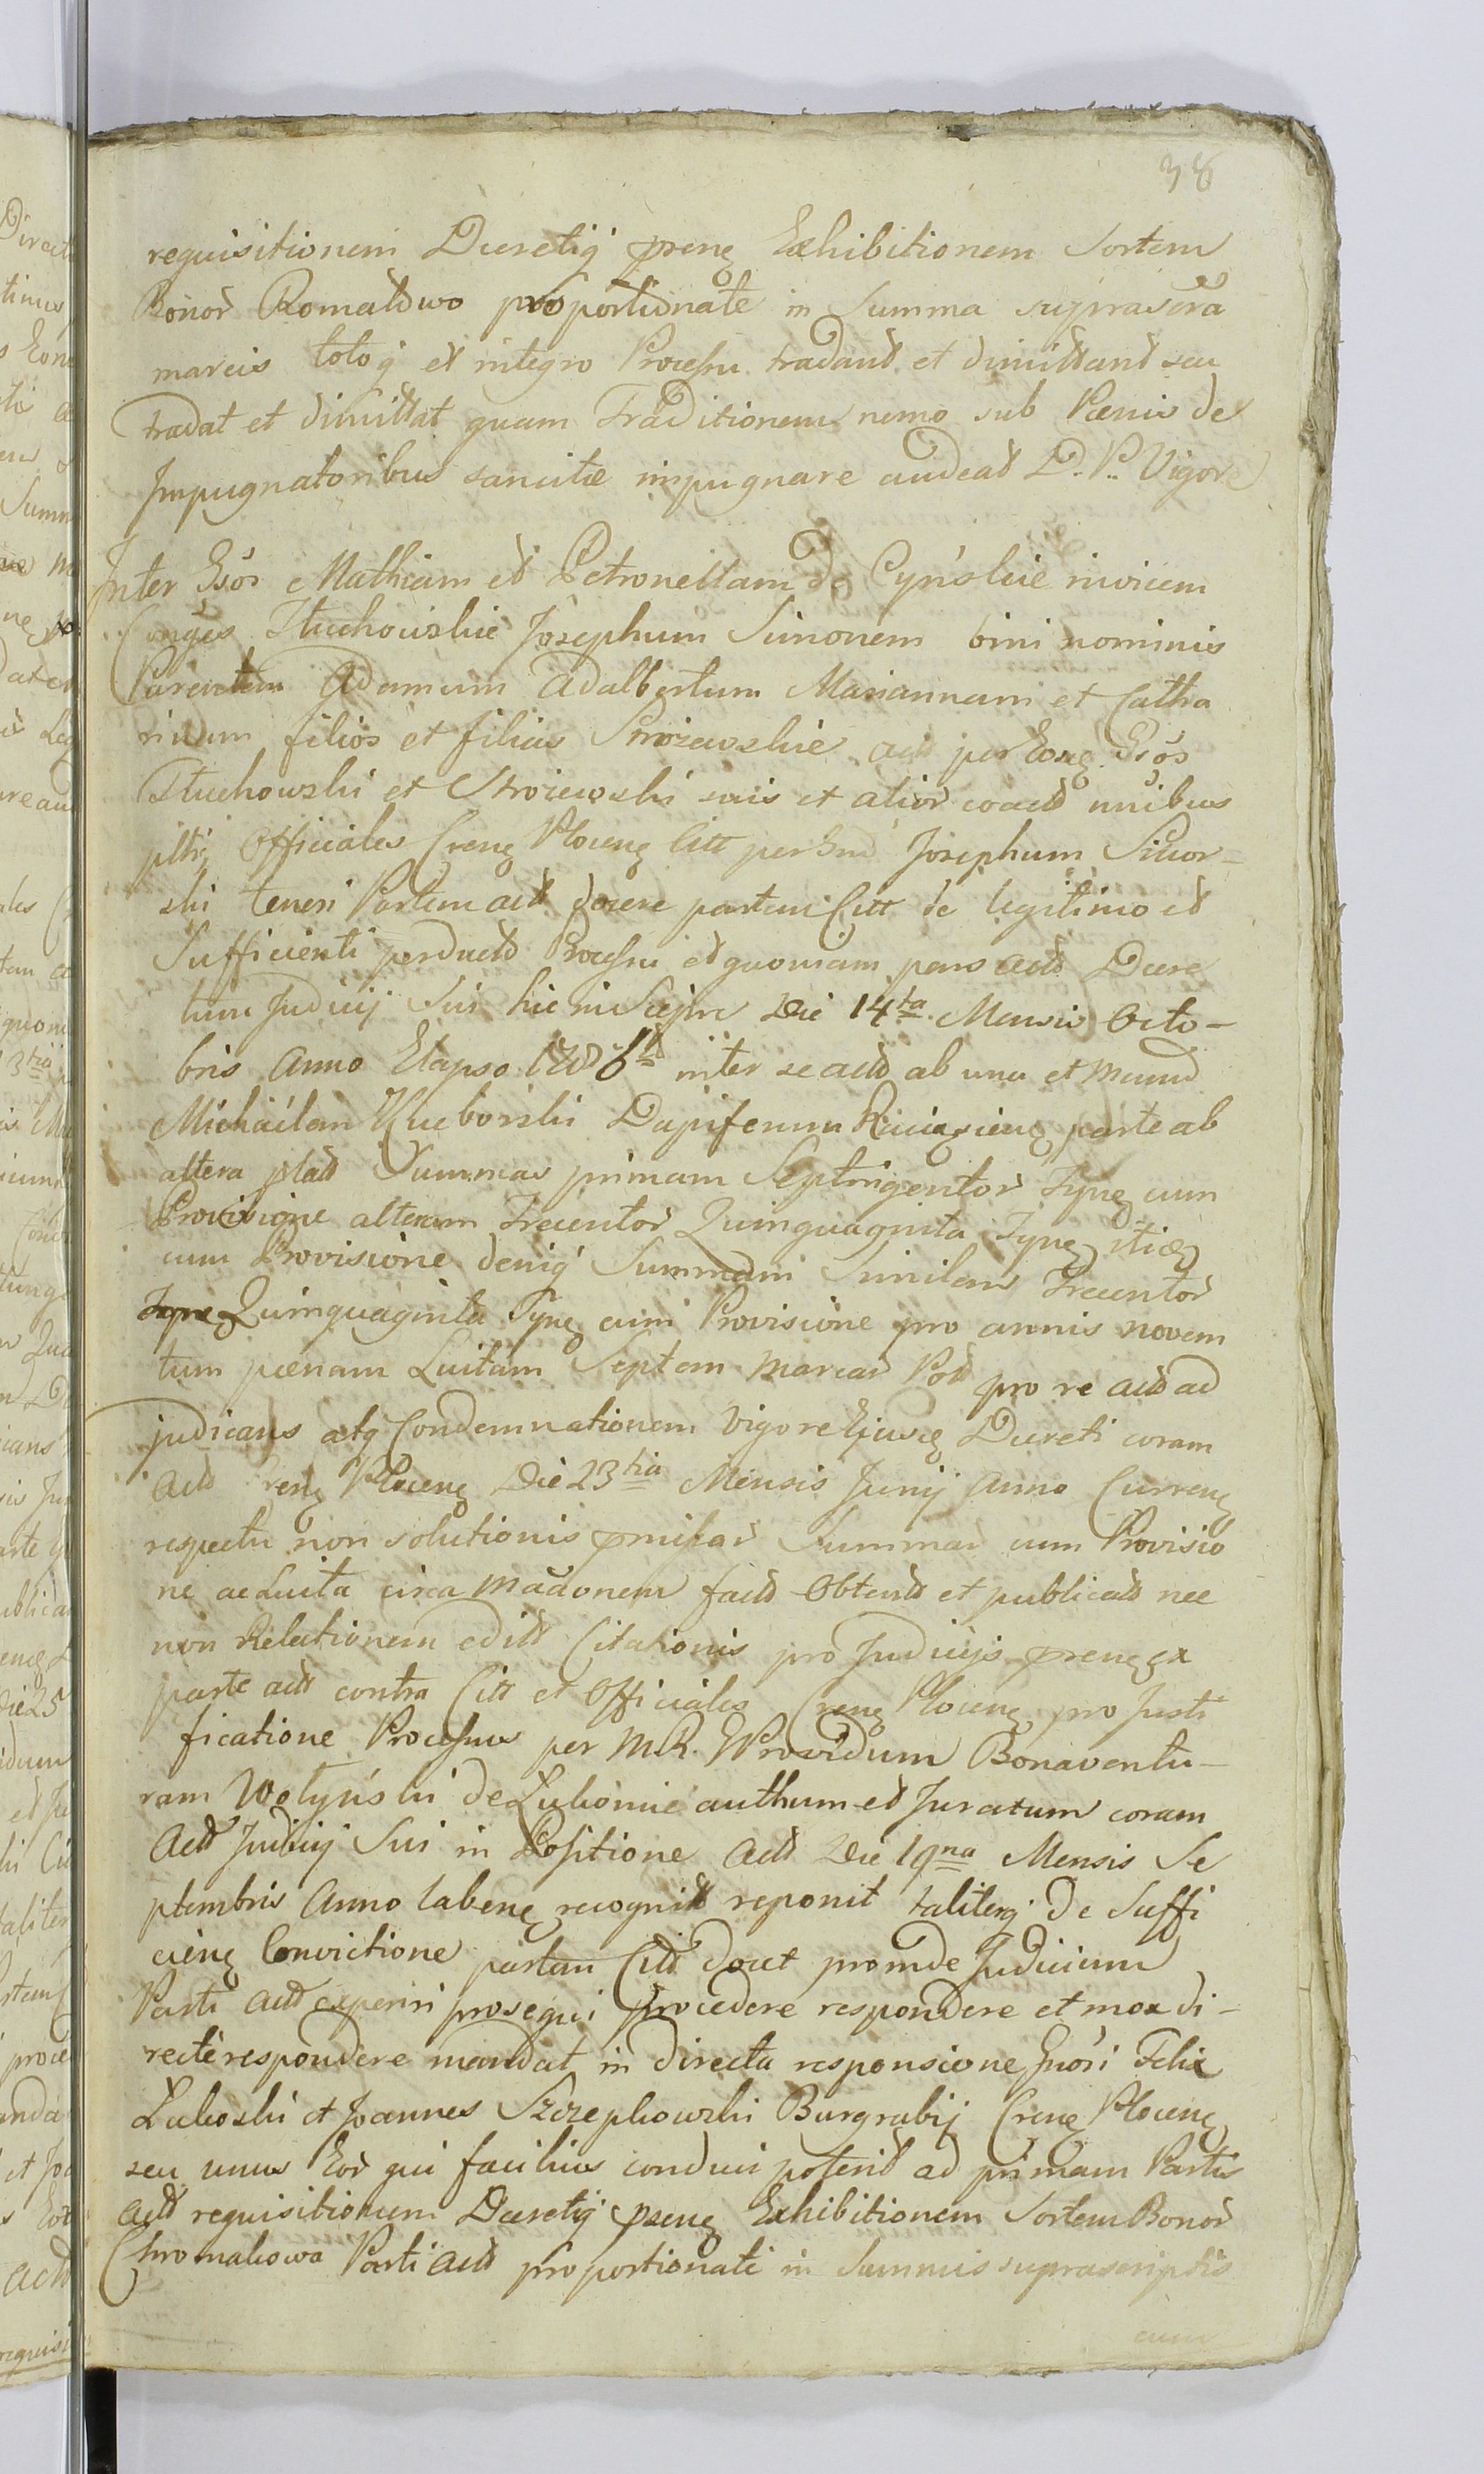 38
requisitionem Decretiq prng Exhibitionem Sortem
Bonor Romatowo proportionate in Summa suprascra
marcis totoq et integro Processu tradant et dimittant seu
tradat et dimittat quam Traditionem nemo sub Pænis de
Impugnatoribus sancitæ impugnare audeat D. P. Vigore
Inter Gsos Mathiam et Petronellam de Cyńskie invicem
Conges Tłuchowskie Josephum Simonem bini nominis
Parentem Adamum Adalbertum Mariannam et Catha
rinam filios et filias Srożewskie act per Eosg Gsos
Tłuchowski et Srożewski suis et alior coactt nnibus
pltiq Officiales Creng Ploceng Citt per Gnd Josephum Sikor-
ski teneri Partem actt docere partem Citt de legitimo et
Sufficienti perductt Processu et quoniam pars actt Decre
tum Judicij Sui hic in Sieprc Die 14ta Mensis Octo-
bris Anno Elapso 1786to inter se actt ab una et Mcund
Michaelem Kuborski Dapiferum Raciązieng parte ab
altera platt Summas primam Septingentor Tynq cum
Provisione alteram Trecentor Quinquaginta Tynq itidq
cum Provisione deniq Summam Similem Trecentor
Quinquaginta Tynq cum Provisione pro annis novem
tum pænam Luitam Septem Marcar Pod pro re actt ad
judicans atq Condemnationem Vigore Ejusq Decreti coram
Actt Creng Ploceng Die 23tia Mensis Junij Anno Curreng
respectu non solutionis pmissar Summar cum Provisio
ne ac Luita circa Maaonem factt Obtentt et publicatt nec
non Relationem editt Citationis pro Judicijs preng ex
parte actt contra Citt et Officiales Creng Ploceng pro Justi
ficatione Processus per M.R. Providum Bonaventu-
ram Wołyński de Lukomie authum et Juratum coram
Actt Judicij Sui in Positione Actt Die 19na Mensis Se
ptembris Anno labeng recognitt reponit taliterq de Suffi
cieng Convictione partem Citt docet proinde Judicium
Parti actt experiri prosequi procedere respondere et mox di-
recte respondere mandat in directa responsione Gnosi Felix
Lukoski et Joannes Szczepkowski Burgrabij Creng Ploceng
seu unus Eor qui facilius conduci poterit ad primam Partis
actt requisitionem Decretiq preng Exhibitionem Sortem Bonor
Chromakowa Parti actt proportionate in Summis suprascriptis
cum